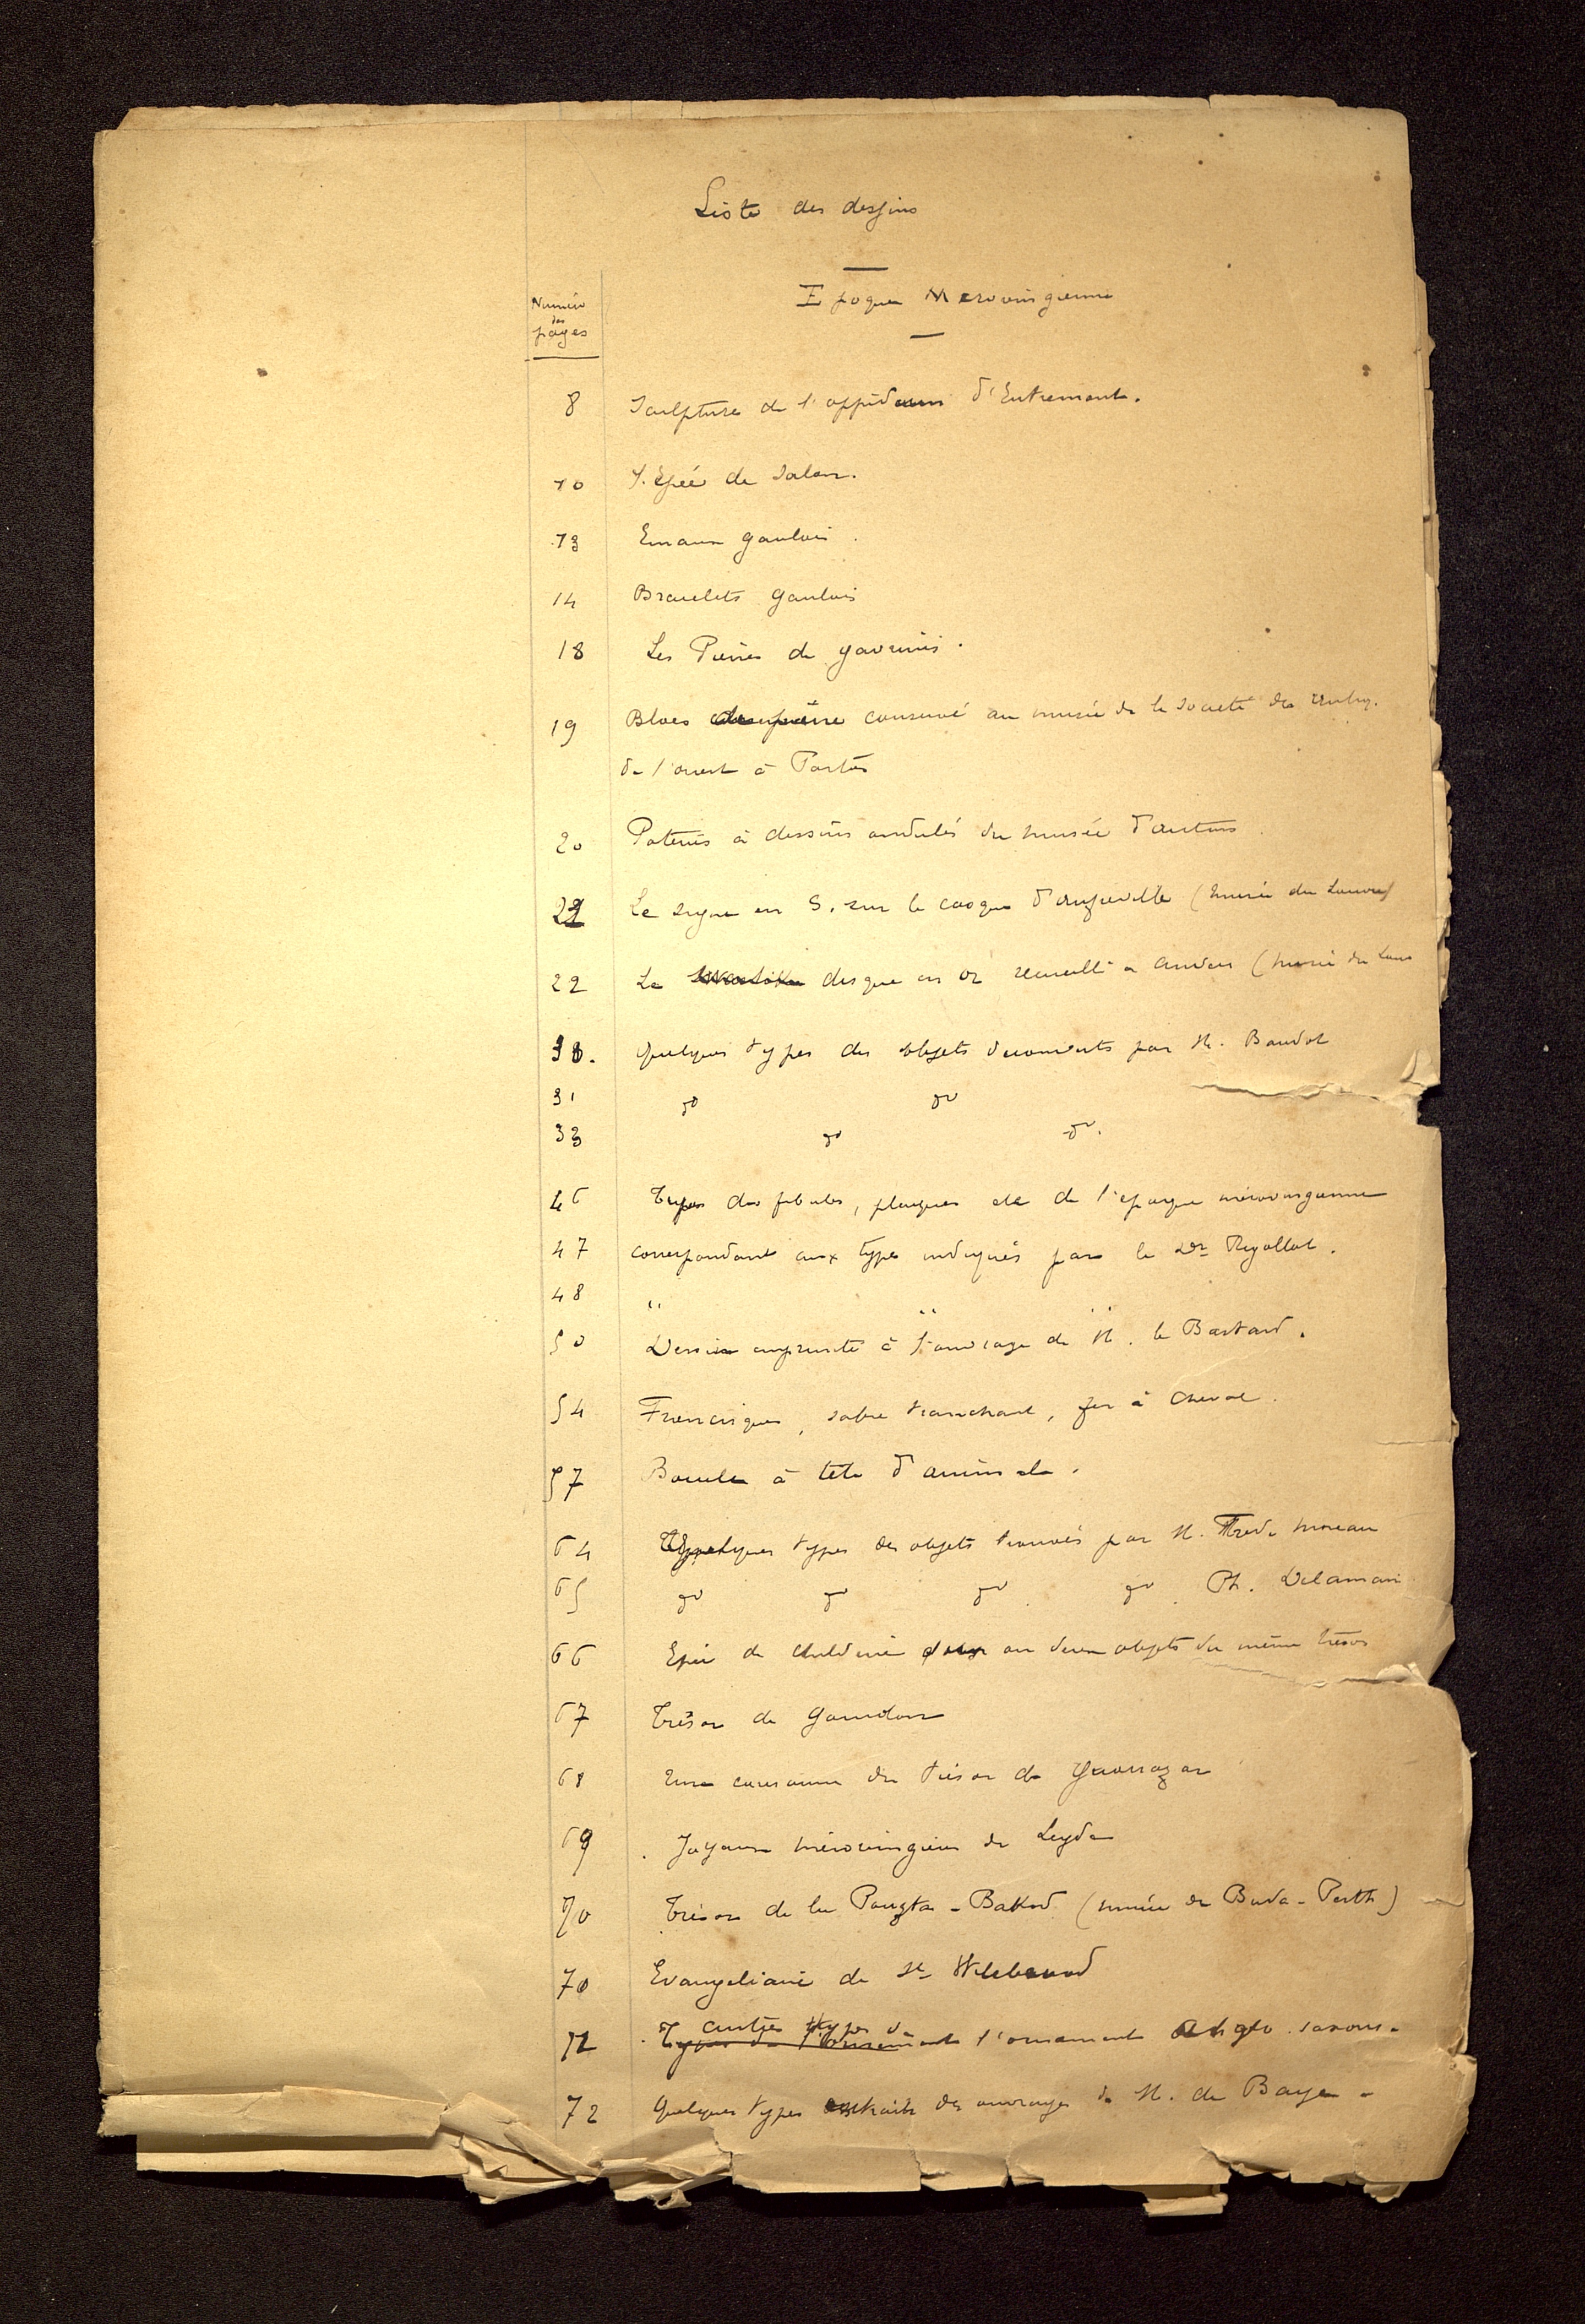 Liste des dessins
Numéro
des
pages
Epoque Merovingienne
8 Sculpture de l'oppidum d'Entremont.
10 L'Epée de Salon.
13 Emaux gaulois.
14 Bracelets gaulois
18 Les Pierres de gavrinis.
19 Blocs de pierre conservé au musée de la Société des antiq.
de l'ouest à Poitiers
20 Poteries à dessins ondulés du musée d'autun
21 Le signe en S. sur le casque d'anfreville (musée du Louvre)
22 Le swastika disque en or recueilli à auvers (musée du Louv
30. Quelques types des objets découverts par M. Baudot
31 do do
33 do do.
46 Types des fibules, plaques etc de l'epoque mérovingienne
47 correspondant aux types indiqués par le Dr Rigollot.
48 " " "
50 Dessin emprunté à l'ouvrage de M. le Bastard.
54 Francisques, sabre tranchant, fer à cheval.
57 Boucle à tête d'animale.
64 Quelques types des objets trouvés par M. Fred. moreau
65 do do do do Ph. Delamain
66 Epée de Childeric ou deux objets du même trésor
67 Trésor de gourdon
68 Une couronne du trésor de guarrazar
69 Joyaux mérovingiens de Leyde
70 Trésor de la Pouszta-Bakod (musée de Buda-Pesth)
70 Evangeliaire de St Wilebrord
autres types de
72 Types de l'ornement l'ornement Anglo-saxons.
72 Quelques types extraits des ouvrages de M. de Baye.